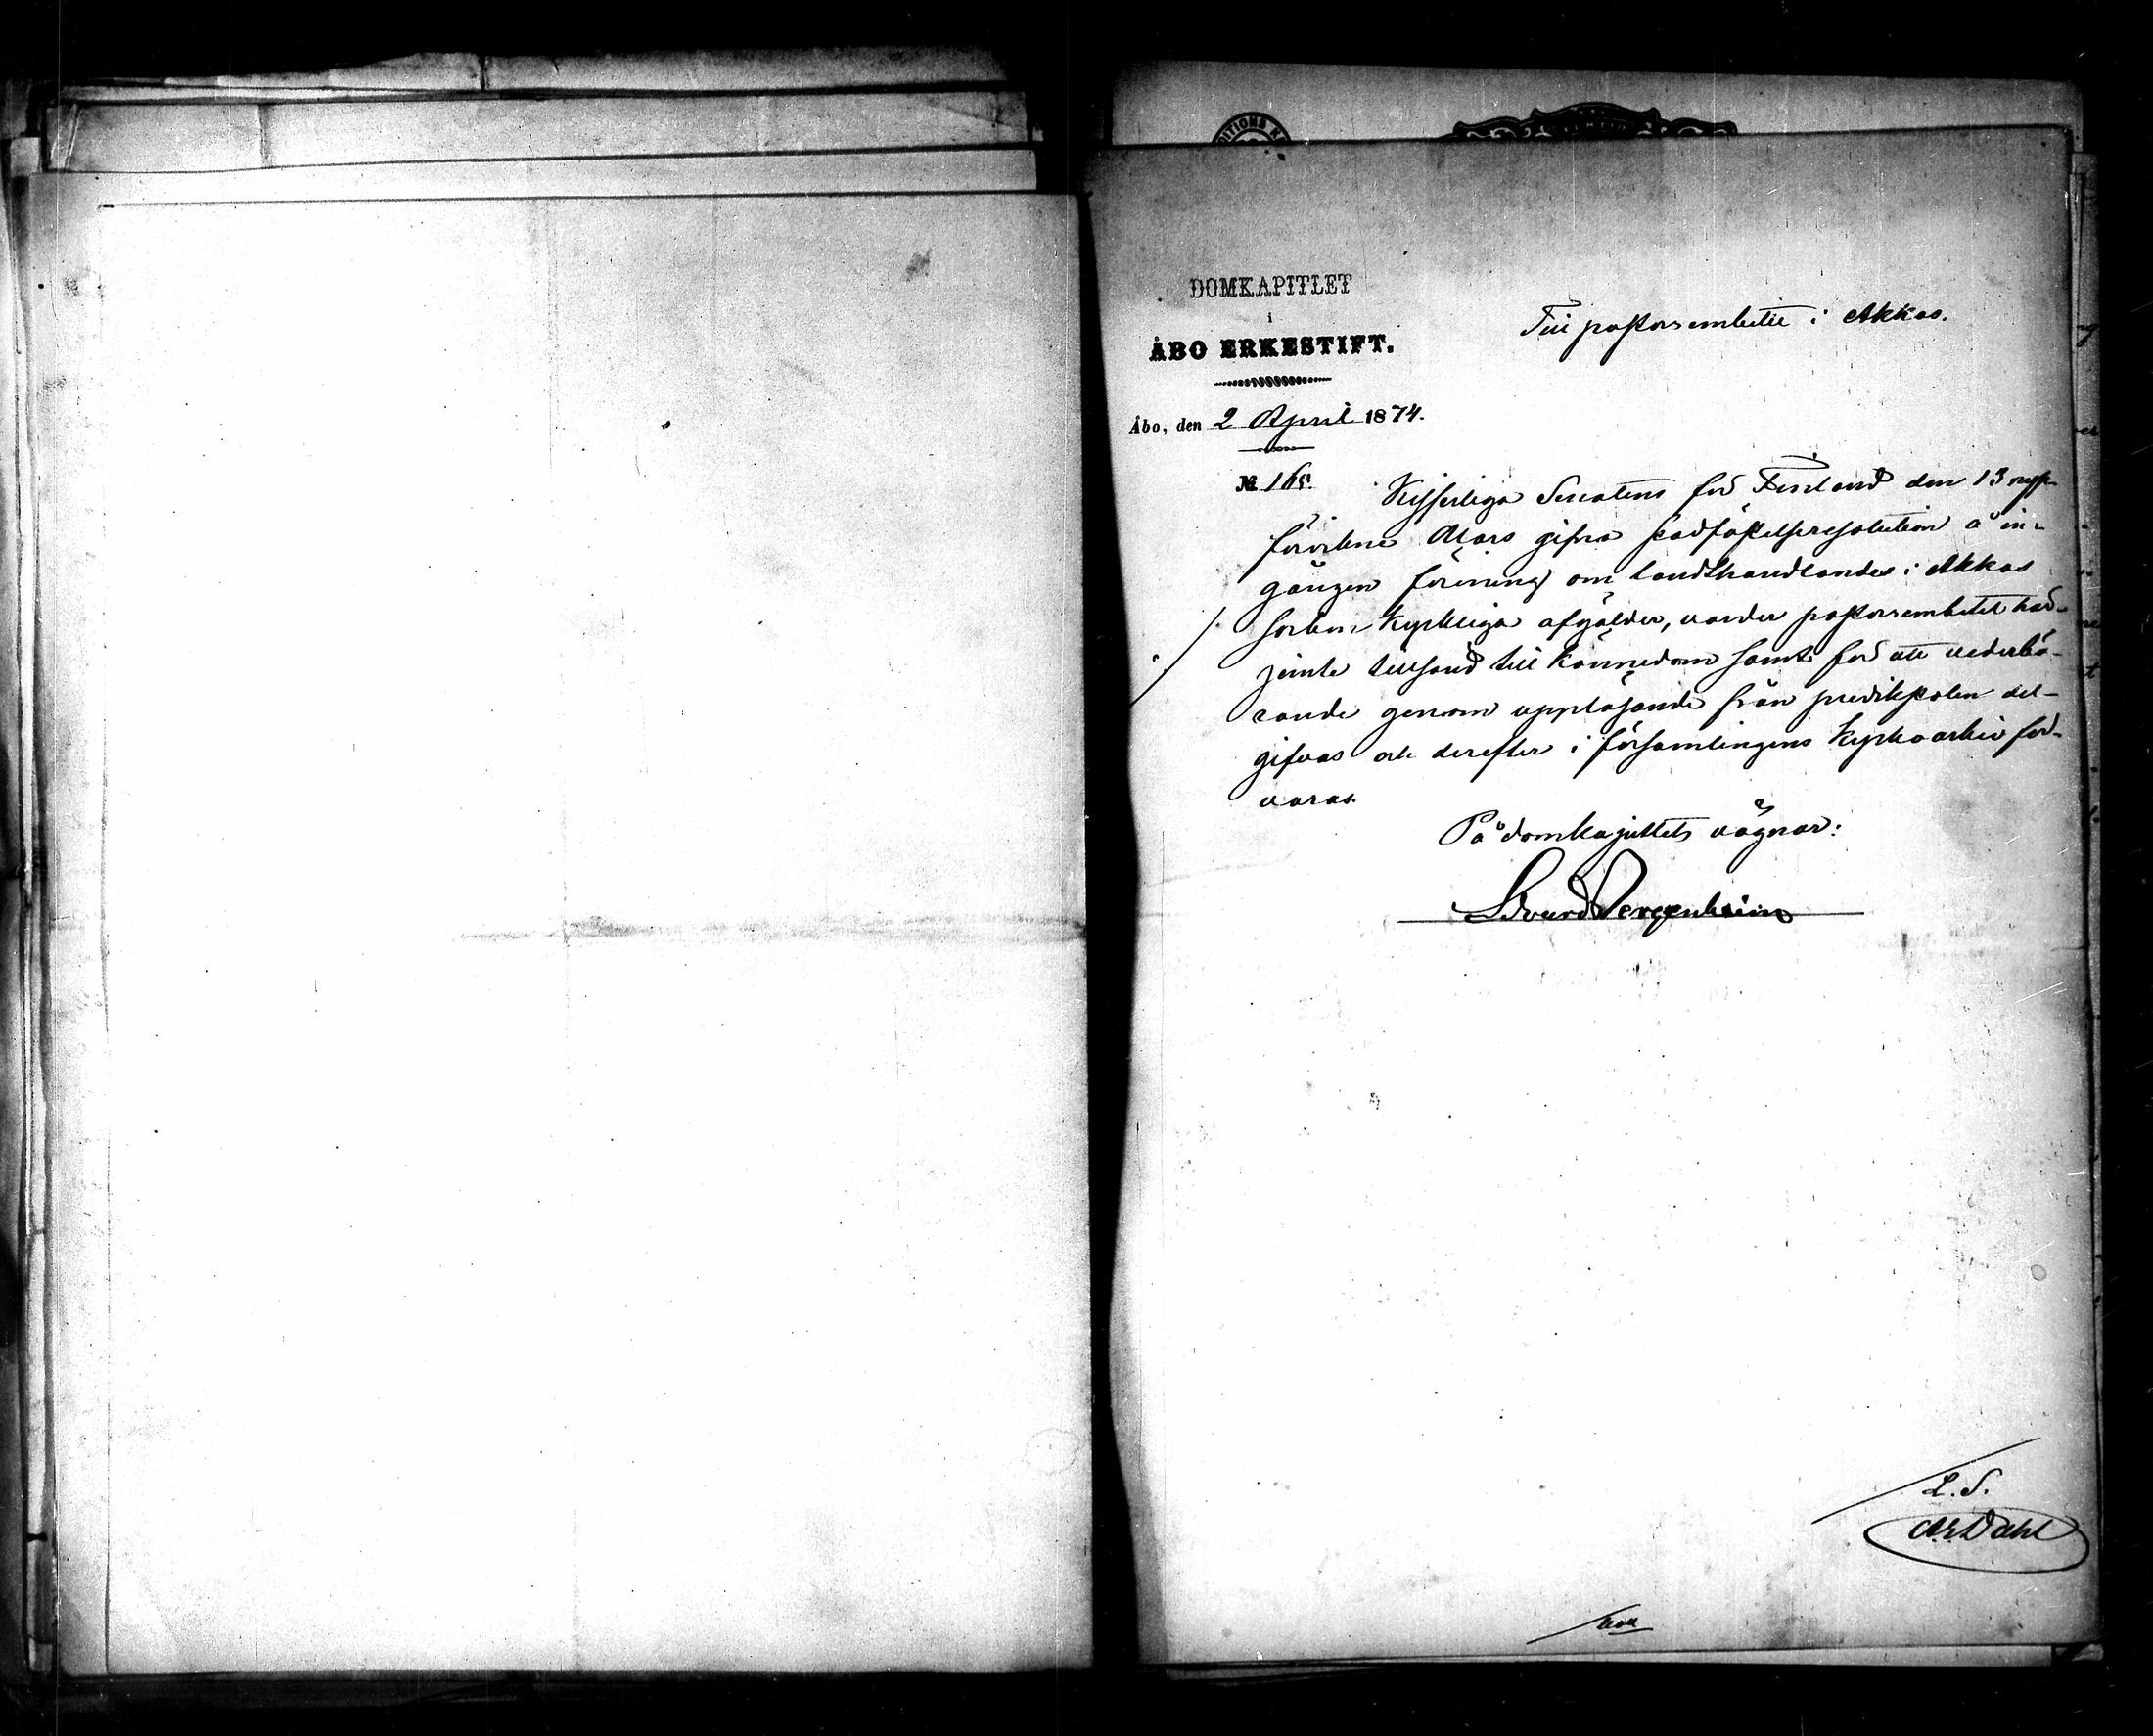 DOMKAPITLET
i
ÅBO ERKESTIFT.
Till pastorsembetet i Akkas.
Åbo, den 2 April 1874.
№ 165.
Kejserliga Senatens för Finland den 13 nyss-
förvikne Mars gifna stadfästelseresolution å in-
gången förening om landthandlandes i Akkas
socken kyrkliga afgälder, varder pastorsembetet här-
jemte tillsänd till kännedom samt för att vederbö-
rande genom uppläsande från predikstolen del-
gifvas och derefter i församlingens kyrkoarkiv för-
varas.
På domkapitlets vägnar:
Edvard Bergenheim
L. S.
Dahl